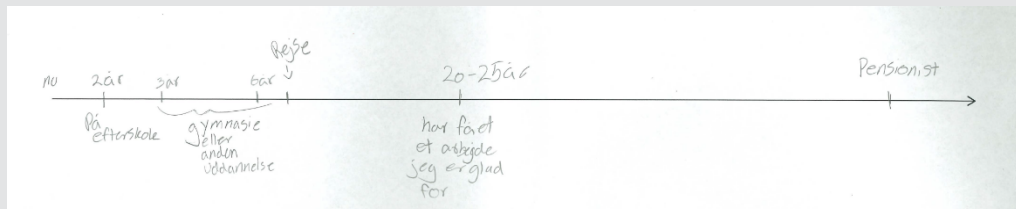 Rejse
nu 2år 3år 6år
20-25år
Pensionist
På
efterskole
gymnasie
eller
anden
uddannelse
har fået
et arbejde
jeg er glad
for